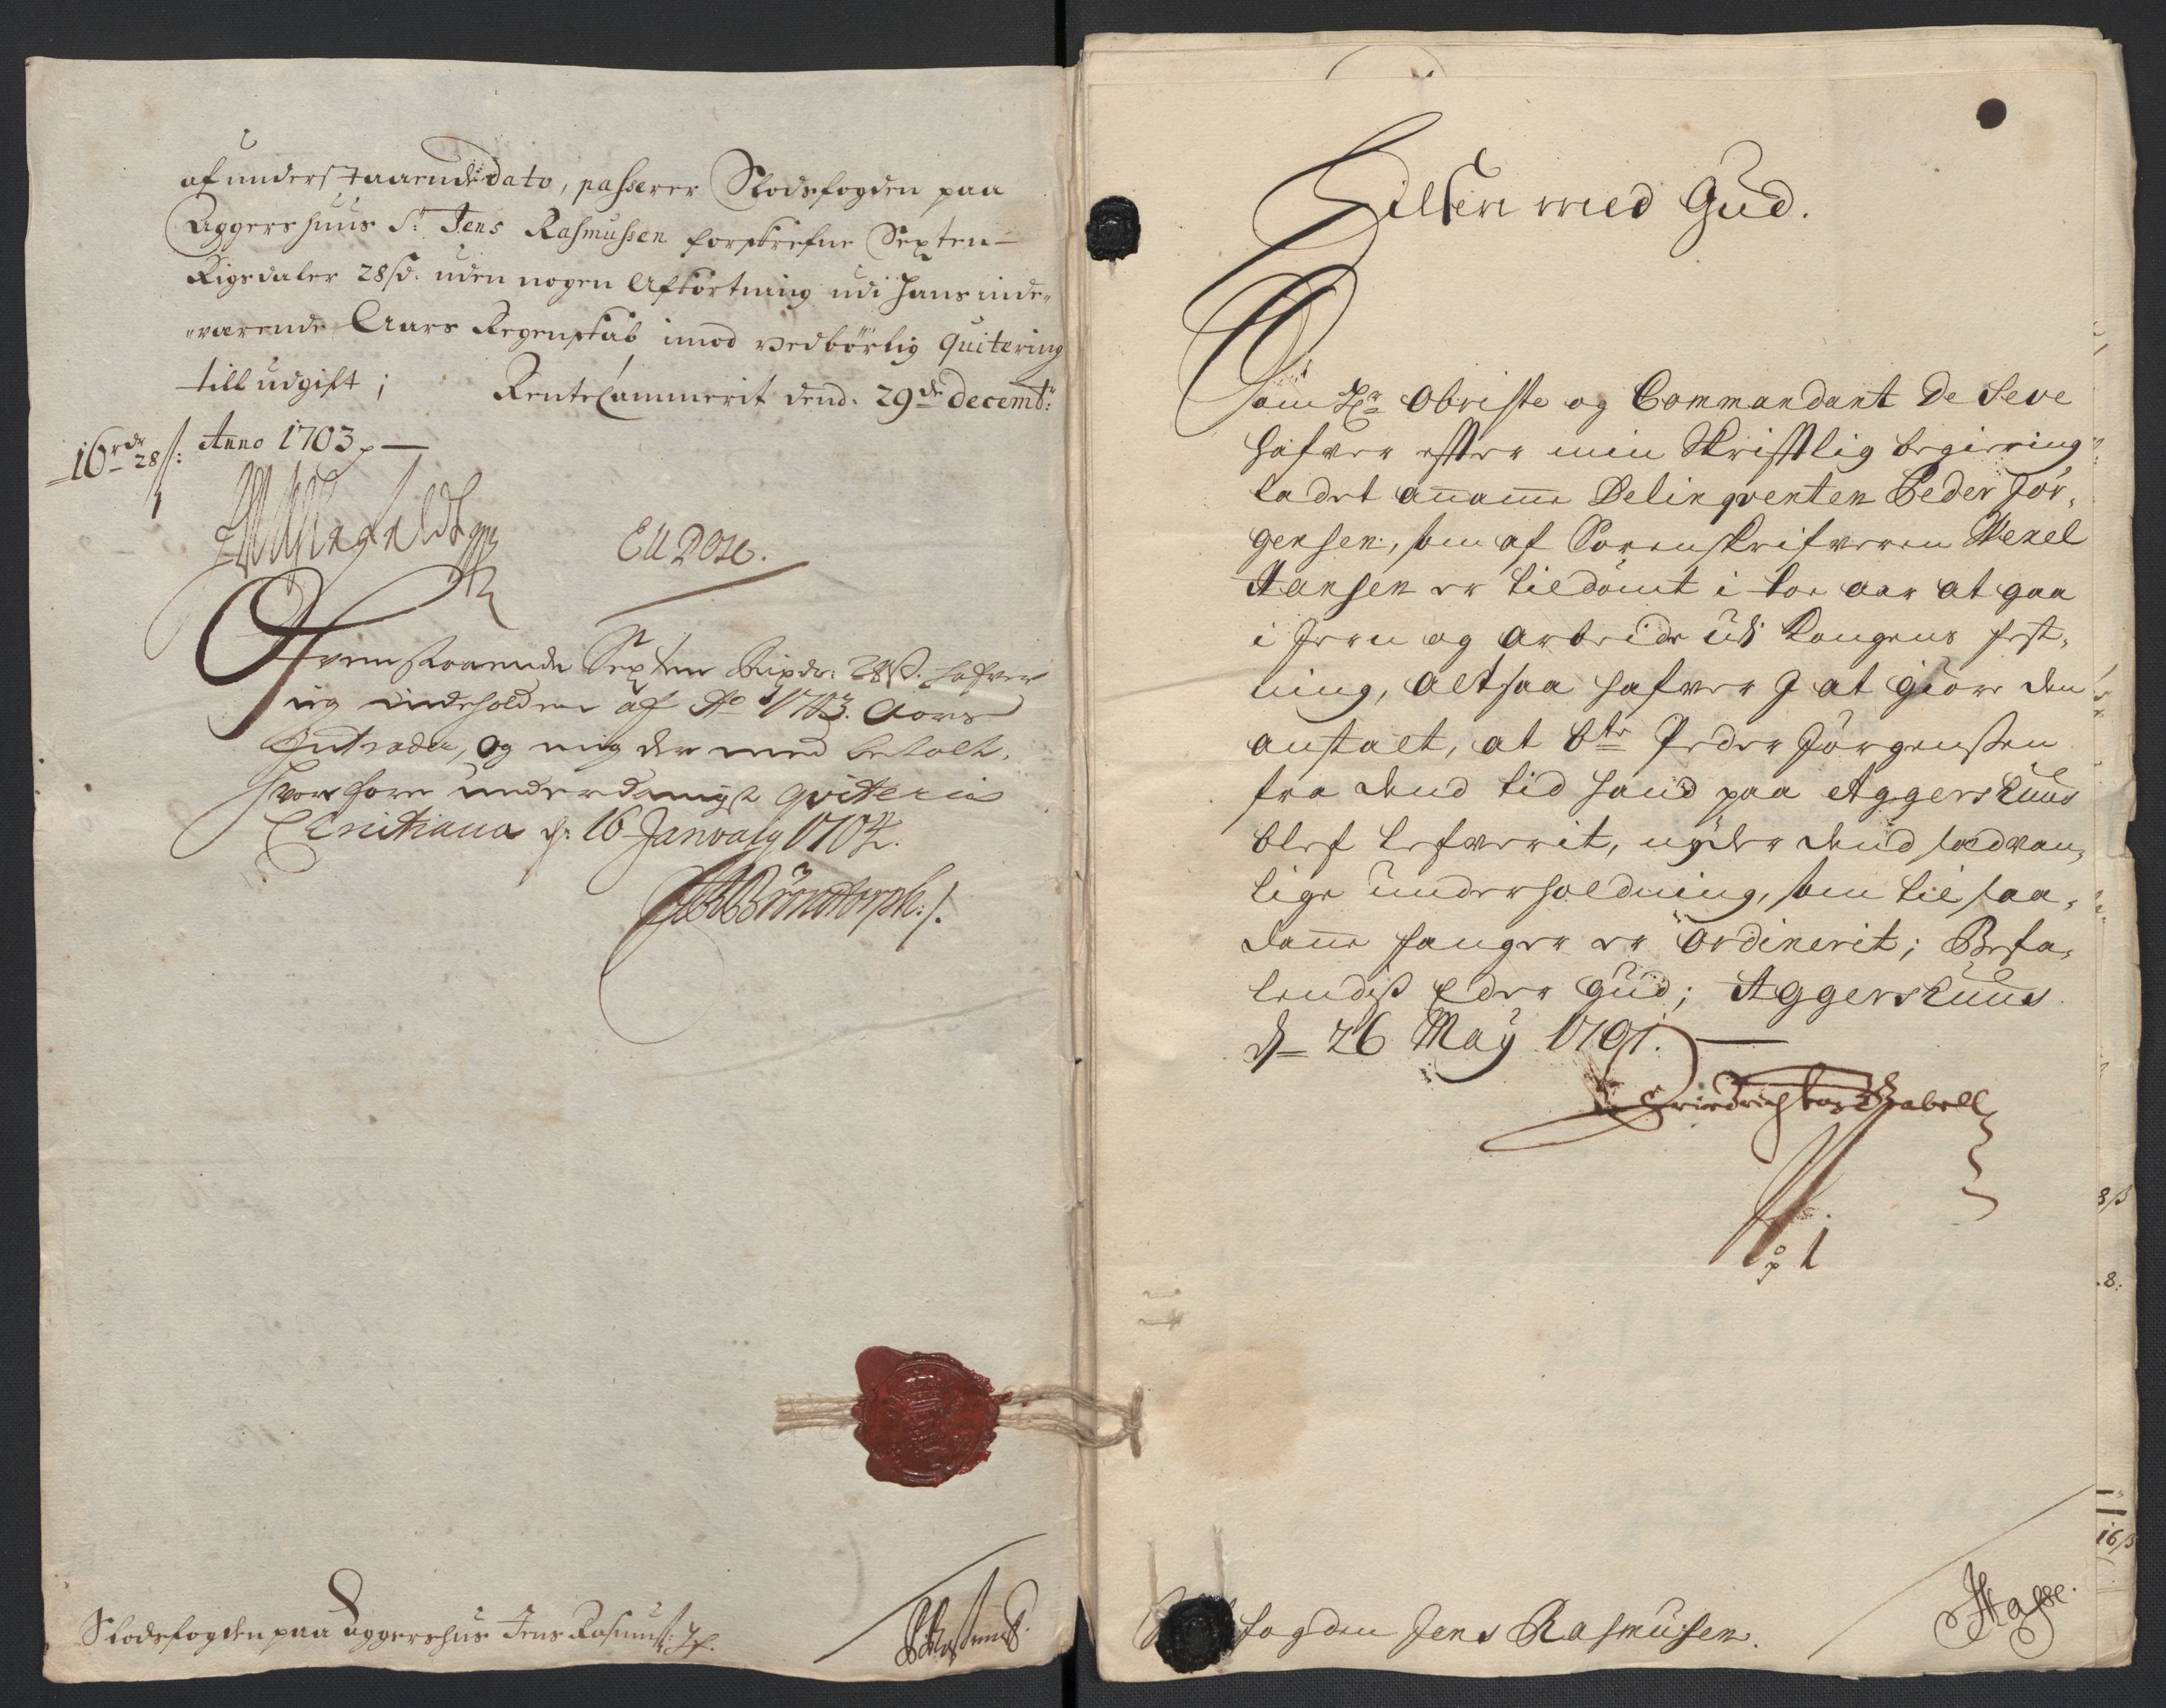 af understaaende dato, passerer Slodsfogden paa
Aggershuus Sr. Jens Rasmussen forskrefne Sexten
Rigsdaler 28 s. uden nogen Afkortning udi hans inde-
værende Aars Regenskab imod vedbörlig Quitering
till udgift; RenteCammerit dend. 29de Decembr:
Anno 1703
16 rdr 28 s:
Ofvenstaaende Sexten Rixdr: 28 ß. hafver
ieg indeholden af Ao 1703. Aars
Intrader, og mig der med betalt.
Hvorfore underdanigst qvitteris
Christiania d: 16 January 1704.
Slodsfogden paa Aggershus Jens Rasmuss:
Hilsen med Gud.
Som Hr Obriste og Commandant De Seve
hafver effter min Skrifftlig begiering
ladet anamme Delinqventen Peder Jör-
gensen, som af Sorenskrifveren Wexel
Hansen er tildömt i toe aar at gaa
i Jern og arbeide udi Kongens fest-
ning, altsaa hafver I at giöre den
anstalt, at bte Peder Jörgensen
fra dend tid hand paa Aggershuus
blef lefverit, nyder dend sædvan-
lige underholdning, som til saa-
danne fanger er ordinerit; Befa-
lendis Eder Gud; Aggershuus
d 26 May 1701.
No 1
fogden Jens Rasmussen.
8 ß
8:
16 ß